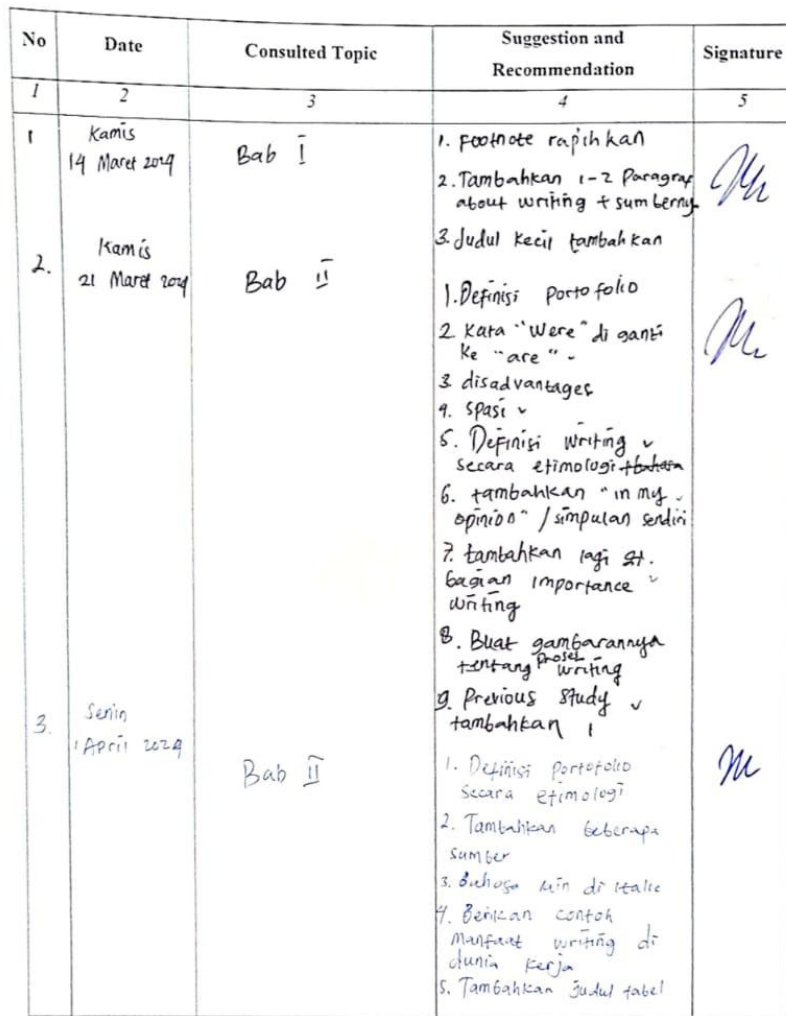 No Date Consulted Topic Suggestion and Recommendation Signature
1 2 3 4 5
1 Kamis
14 Maret 2024
Bab I
1. Footnote rapihkan
2. Tambahkan 1-2 Paragraf
about writing + sumberny
3. Judul kecil tambahkan
2. Kamis
21 Maret 2024
Bab II
1. Definisi portofolio
2 Kata "were" di ganti
ke "are" ✓
3 disadvantages
4. spasi ✓
5. Definisi writing ✓
secara etimologi + bahasa
6. tambahkan "in my ✓
opinion" / simpulan sendiri
7. tambahkan lagi
bagian importance ✓
writing
8. Buat gambarannya
tentang proses writing
9. Previous Study ✓
tambahkan 1
3. Senin
1 April 2024
Bab II
1. Definisi portofolio
secara etimologi
2. Tambahkan beberapa
sumber
3. Bahasa di italic
4. Berikan contoh
manfaat writing di
dunia kerja
5. Tambahkan judul tabel